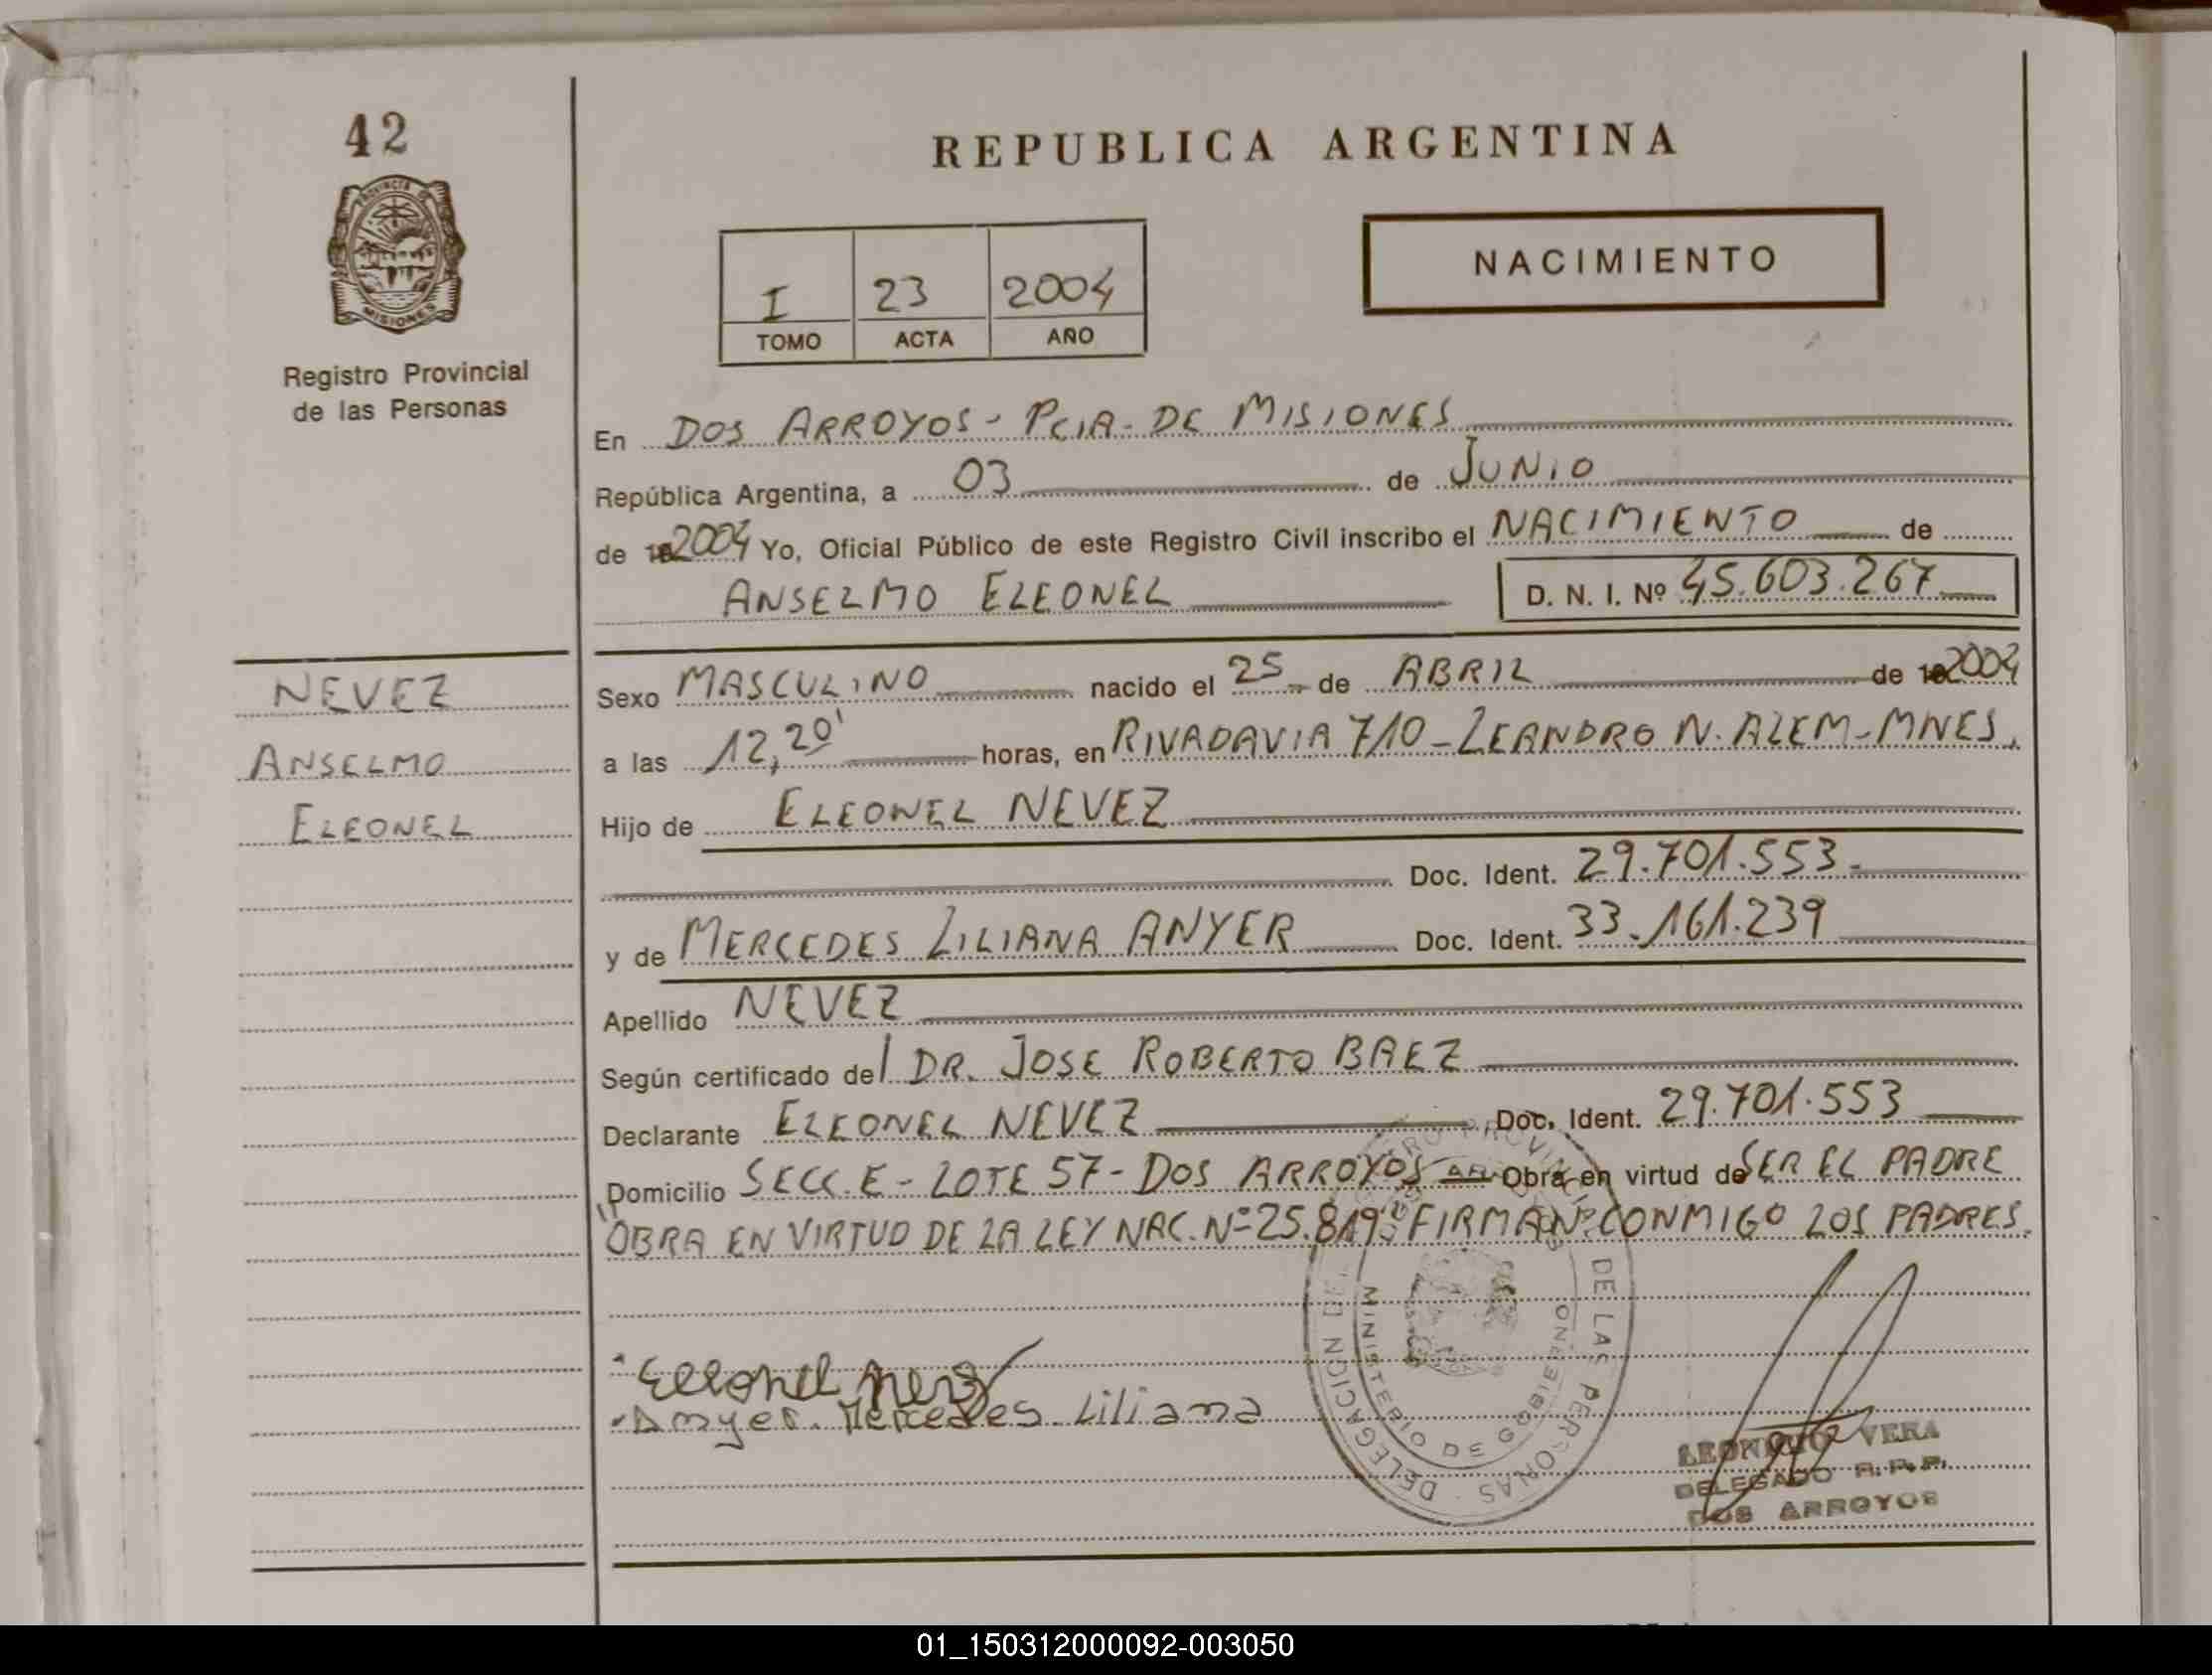 42
REPUBLICA ARGENTINA
PROVINCIA DE
MISIONES
NACIMIENTO
I 23 2004
TOMO ACTA AÑO
Registro Provincial
de las Personas
En DOS ARROYOS - PCIA - DE MISIONES
República Argentina, a 03 de JUNIO
de 2004 Yo, Oficial Público de este Registro Civil inscribo el NACIMIENTO de
ANSELMO ELEONEL D. N. I. Nº 45.603.267
NEVEZ
ANSELMO
ELEONEL
Sexo MASCULINO nacido el 25 de ABRIL de 2004
a las 12,20' horas, en RIVADAVIA 710 - LEANDRO N. ALEM - MNES.
Hijo de ELEONEL NEVEZ
Doc. Ident. 29.701.553.-
y de MERCEDES LILIANA ANYER Doc. Ident. 33.161.239
Apellido NEVEZ
Según certificado del DR. JOSE ROBERTO BAEZ
Declarante ELEONEL NEVEZ Doc. Ident. 29.701.553
Domicilio SECC. E - LOTE 57 - DOS ARROYOS Obra en virtud de SER EL PADRE
"OBRA EN VIRTUD DE LA LEY NAC. Nº 25.819" FIRMAN CONMIGO LOS PADRES.
Eleonel Nevez
Anyer. Mercedes Liliana
DELEGACION
DE LAS PERSONAS
MINISTERIO DE GOBIERNO
VERA
DELEGADO R.P.P.
DOS ARROYOS
01_150312000092-003050